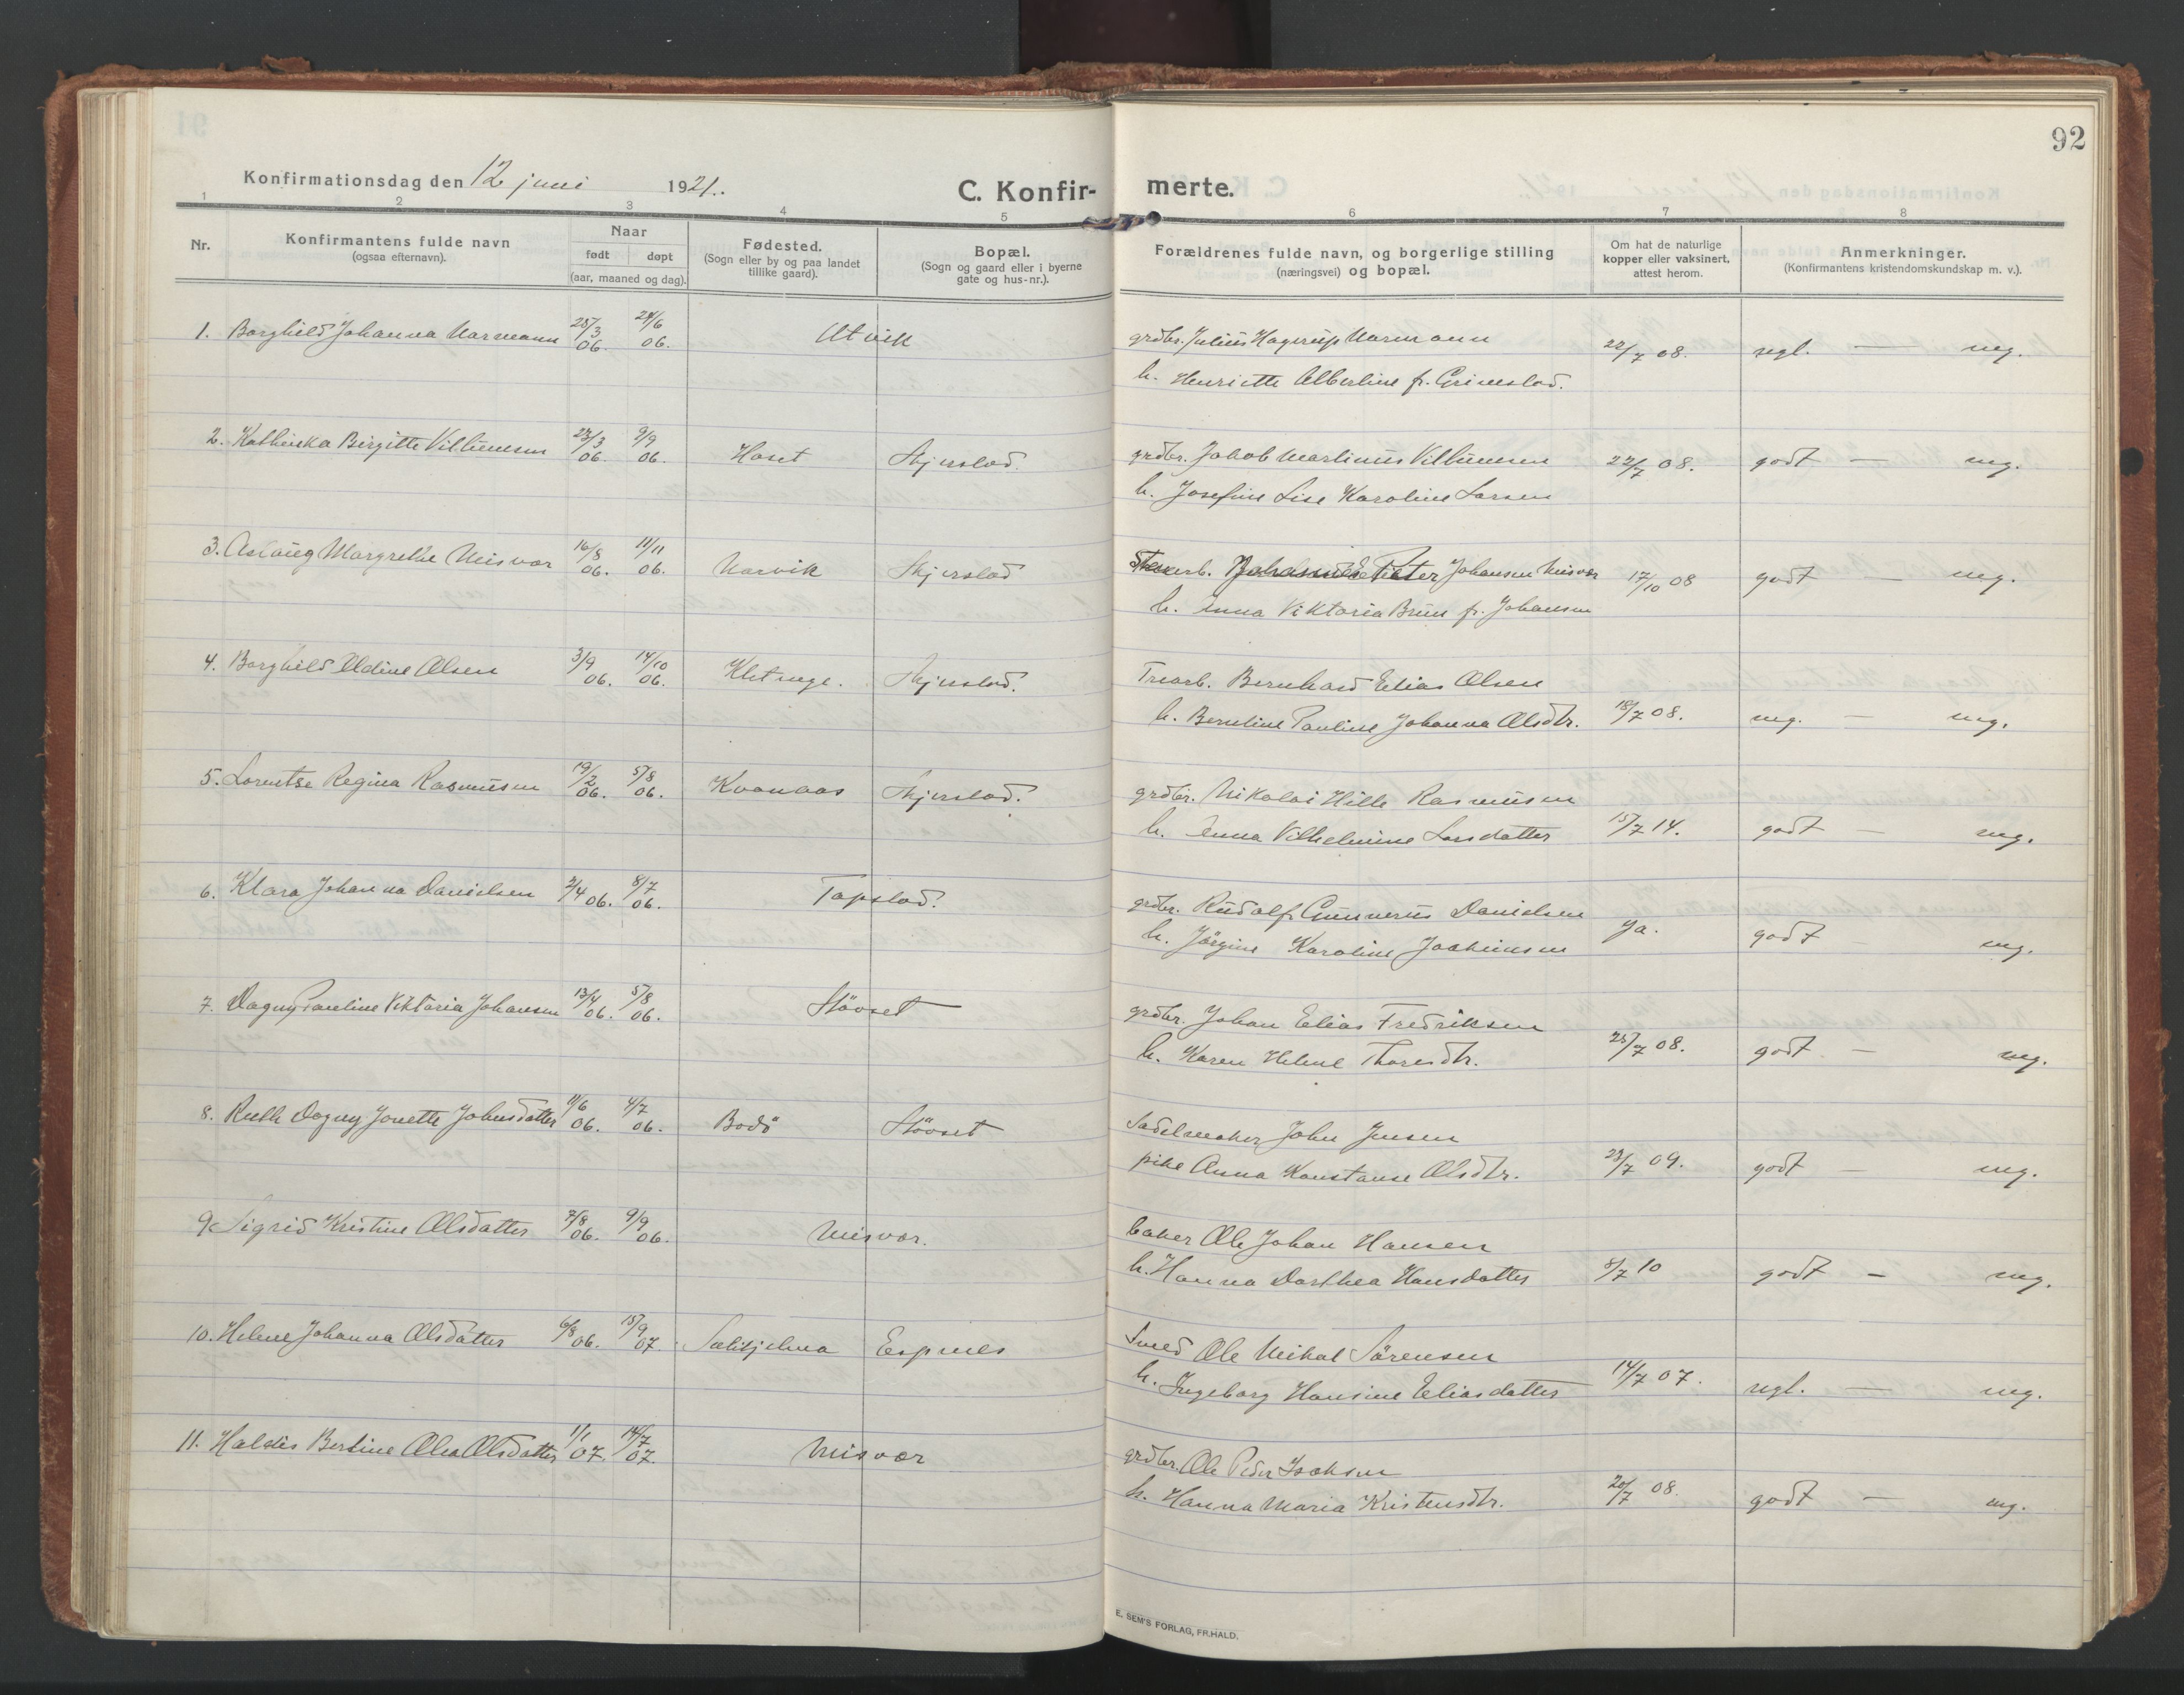 92
Konfirmationsdag den 12 juni 1921.
C. Konfir- merte.
1 2 3 4 5 6 7 8
Nr.
Konfirmantens fulde navn
(ogsaa efternavn).
Naar
født døpt
(aar, maaned og dag).
Fødested.
(Sogn eller by og paa landet
tillike gaard).
Bopæl.
(Sogn og gaard eller i byerne
gate og hus-nr.).
Forældrenes fulde navn, og borgerlige stilling
(næringsvei) og bopæl.
Om hat de naturlige
kopper eller vaksinert,
attest herom.
Anmerkninger.
(Konfirmantens kristendomskundskap m. v.).
1. Borghild Johanna Marmann 28/3 06. 24/6 06. Utvik grdbr. Julius Hagerup Marmann 22/7 08. regl. — mg.
h. Henriette Albertine f. Grimstad.
2. Kathinka Birgitte Villumsen 23/3 06. 9/9 06. Haset Skjerstad. grdbr. Jakob Martinus Villumsen 22/7 08. godt — mg.
h. Josefine Lise Karoline Larsen
3. Aslaug Margrethe Misvær 16/8 06. 11/11 06. Narvik Skjerstad Peter Johansen Misvær 17/10 08 godt — mg.
h. Anna Viktoria Brun f. Johansen
4. Borghild Aldine Olsen 3/9 06. 14/10 06. Kletnge. Skjerstad. Trearb. Bernhard Elias Olsen
h. Berntine Pauline Johanna Olsdtr. 18/7 08. mg. — mg.
5. Lorentse Regina Rasmusen 19/2 06. 5/8 06. Kvanaas Skjerstad. grdbr. Nikolai Hille Rasmusen
h. Anna Vilhelmine Larsdatter 15/7 14. godt — mg.
6. Klara Johanna Danielsen 2/4 06. 8/7 06. Tapstad. grdbr. Rudolf Gunnerus Danielsen ja.
h. Jörgine Karoline Joakimsen godt — mg.
7. Dagny Pauline Viktoria Johansen 13/4 06. 5/8 06. Stövset grdbr. Johan Elias Fredriksen
h. Karen Helene Thoresdtr. 25/7 08. godt — mg.
8. Ruth Dagny Jonette Johnsdatter 11/6 06. 4/7 06. Bodö Stövset Sadelmaker John Jensen
pike Anna Konstanse Olsdtr. 23/7 09. godt — mg.
9. Sigrid Kristine Olsdatter 7/8 06. 9/9 06. Misvær. baker Ole Johan Hansen
h. Hanna Dorthea Hansdatter 8/7 10 godt — mg.
10. Helene Johanna Olsdatter 6/8 06. 15/9 07. Sulitjelma Espnes Smed Ole Mikal Sörensen
h. Ingeborg Hansine Eliasdatter 14/7 07. regl. — mg.
11. Haldis Bertine Olea Olsdatter 1/1 07. 14/7 07. Misvær grdbr. Ole Peder Isaksen
h. Hanna Maria Kristensdtr. 20/7 08. godt — mg.
E. SEM'S FORLAG, FR.HALD.